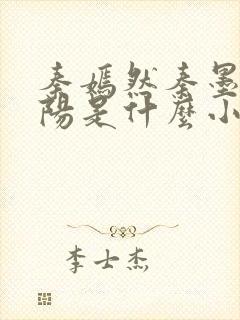 秦嫣然秦墨
陽是什麼小
李士杰